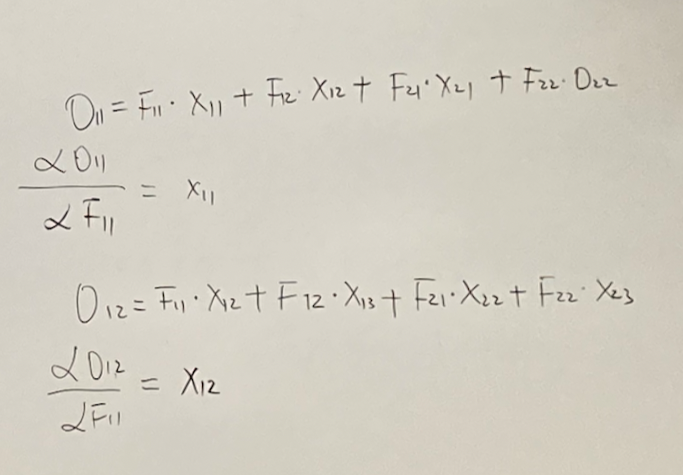 O11 = F11 · X11 + F12 · X12 + F21 · X21 + F22 · O22
αO11
αF11
= X11
O12 = F11 · X12 + F12 · X13 + F21 · X22 + F22 · X23
αO12
αF11
= X12